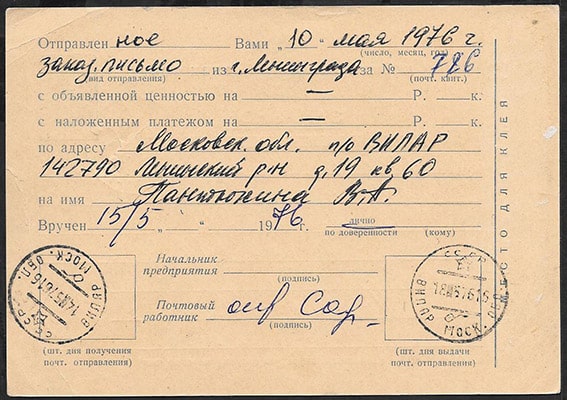 Отправлен ное Вами „ 10 “ мая 1976 г.
(число, месяц, год)
заказ. письмо из г. Ленинграда за № 786
(вид отправления) (почт. квит.)
с объявленной ценностью на — Р. к.
с наложенным платежом на — Р. к.
по адресу Московск. обл. п/о ВИЛАР
142790 Ленинский р-н д. 19 кв. 60
на имя В. А.
Вручен 15/5 „ “ 1976 г. лично
по доверенности (кому)
Начальник
предприятия
(подпись)
Почтовый
работник
(подпись)
(шт. дня получения
почт. отправления)
(шт. дня выдачи
почт. отправления)
МЕСТО ДЛЯ КЛЕЯ
СССР
МОСК. ОБЛ.
СССР
МОСК. ОБЛ.